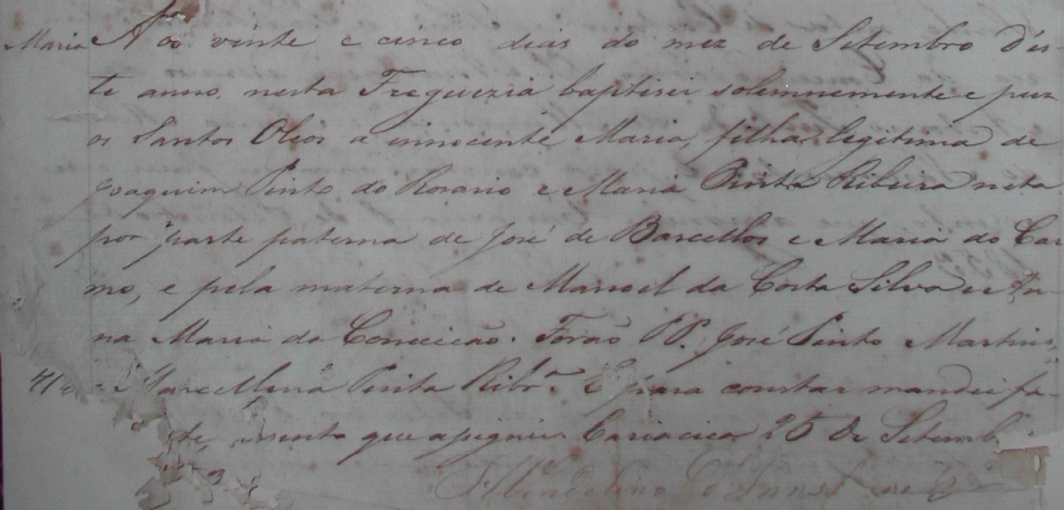 Maria Aos vinte e cinco dias do mez de Setembro des
te anno, nesta Freguezia baptisei solemnemente e puz
os Santos Oleos a innocente Maria, filha legitima de
Joaquim Pinto do Rozario e Maria Pinta Ribeira neta
por parte paterna de José de Barcellos e Maria do Car
mo, e pela materna de Manoel da Costa Silva e An-
na Maria da Conceicão. Forão PP. José Pinto Martins,
e Marcellina Pinta Ribrª. E para constar mandei fa-
assento que assignei. Cariacica 25 de Setemb